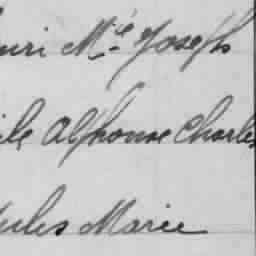 Mie Joseph
Alphonse Charles
Jules Marie